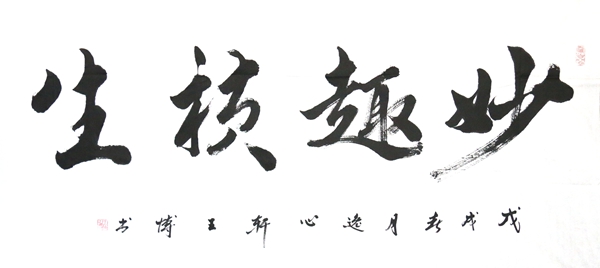 妙趣横生
戊戌春月逸心轩王博书